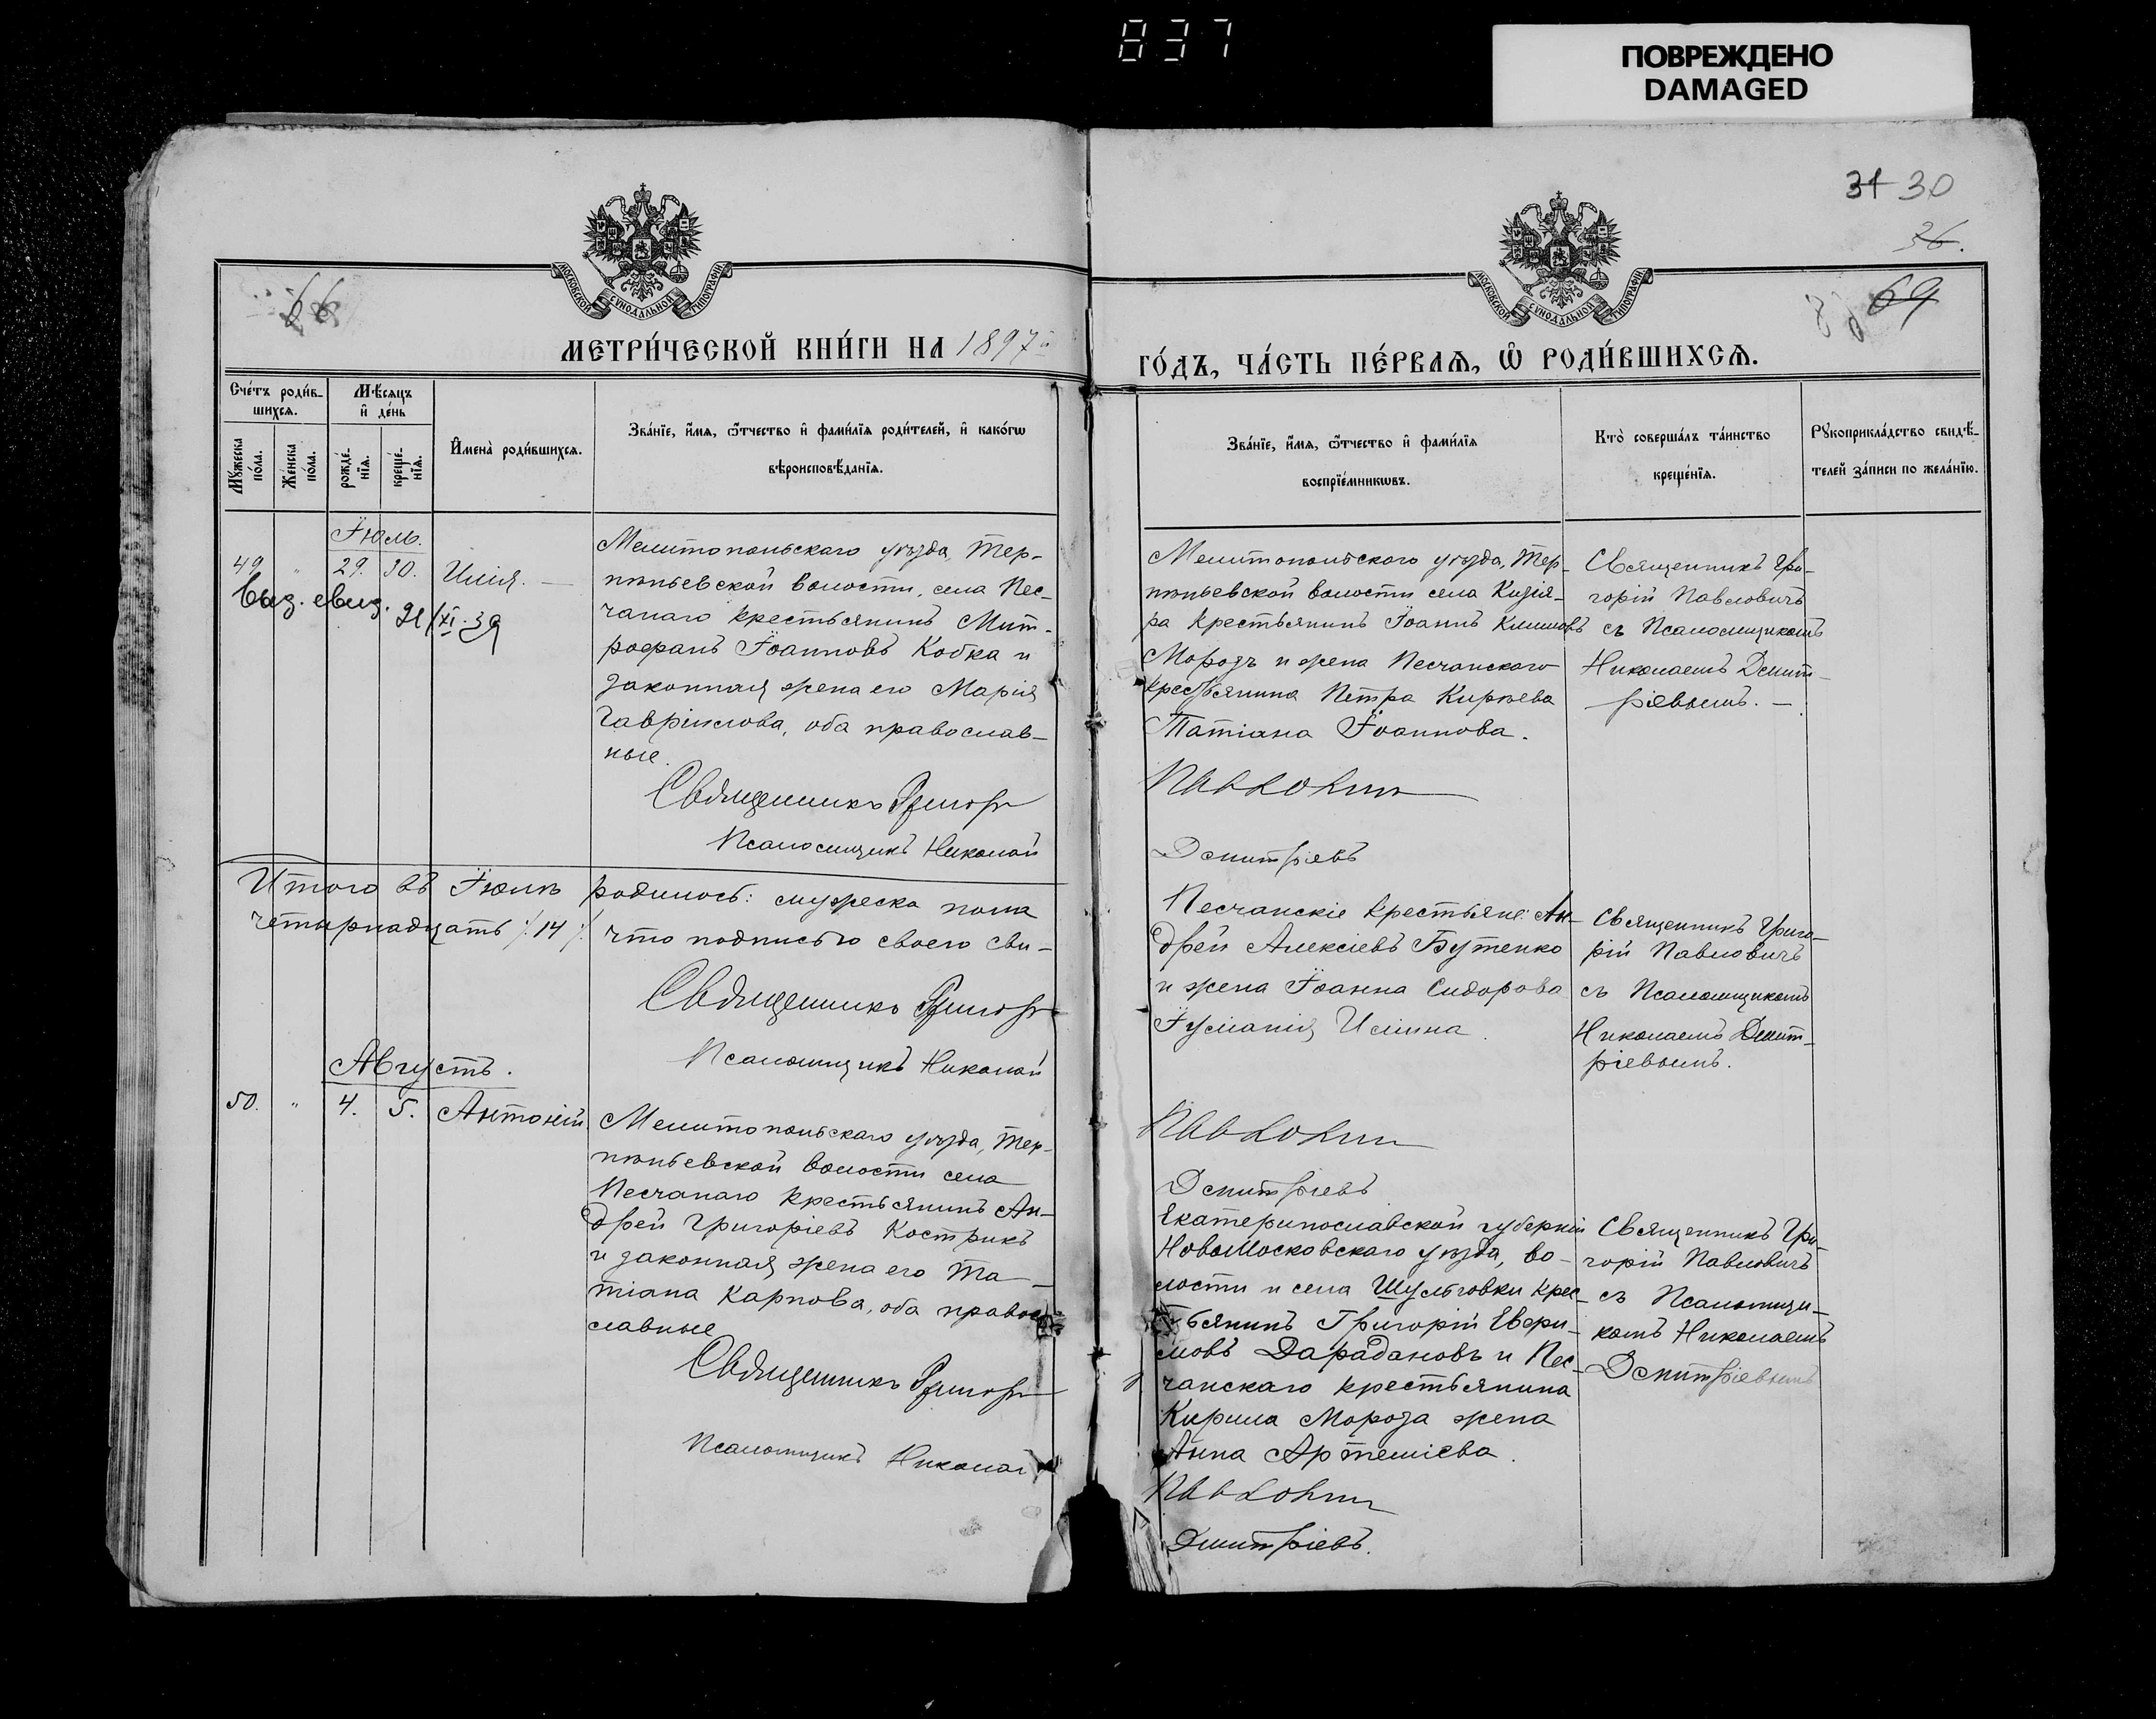 837
ПОВРЕЖДЕНО
DAMAGED
31 30
36.
66
69
МОСКОВСКОЙ СУНОДАЛЬНОЙ ТИПОГРАФІИ
МОСКОВСКОЙ СУНОДАЛЬНОЙ ТИПОГРАФІИ
МЕТРИ́ЧЕСКОЙ КНИ́ГИ НА 1897й
ГО́ДЪ, ЧА́СТЬ ПЕ́РВАѦ, Ѽ РОДИ́ВШИХСѦ.
Сче́тъ роди́в-
шихсѧ.
Мѣ́сѧцъ
и҆ де́нь
Мꙋ́жеска
по́ла.
Же́нска
по́ла.
рожде́-
нїѧ.
креще́-
нїѧ.
И҆мена̀ роди́вшихсѧ.
Зва́нїе, и҆́мѧ, ѻ҆́тчество и҆ фами́лїѧ роди́телей, и҆ како́гѡ
вѣроисповѣ́данїѧ.
Зва́нїе, и҆́мѧ, ѻ҆́тчество и҆ фами́лїѧ
воспрїе́мникѡвъ.
Кто̀ соверша́лъ та́инство
креще́нїѧ.
Рꙋкоприкла́дство свидѣ́-
телей за́писи по жела́нїю.
Їюль.
49 " 29. 30. Илія. —
Выд. свид. 21/XI-39
Мелитопольскаго уѣзда, Тер-
пѣньевской волости, села Пес-
чанаго крестьянинъ Мит-
рофанъ Їоанновъ Кобка и
законная жена его Марія
Гавріилова, оба православ-
ные.
Священникъ Григор
Псаломщикъ Николай
Мелитопольского уѣзда, Тер-
пѣньевской волости села Кизія-
ра крестьянинъ Їоаннъ Климовъ
Морозъ и жена Песчанского
крестьянина Петра Кирѣева
Татіана Їоаннова.
Павлович
Дмитріевъ
Священникъ Гри-
горій Павловичъ
съ Псаломщикомъ
Николаемъ Дмит-
ріевымъ. —
Итого въ Їюлѣ родилось: мужеска пола
четырнадцать /. 14 /. что подписью своею сви-
Священникъ Григор
Псаломщикъ Николай
Песчанскіе крестьяне: Ан-
дрей Алексіевъ Бутенко
и жена Їоанна Сидорова
Їуліанія Иліина.
Священникъ Григо-
рій Павловичъ
съ Псаломщикомъ
Николаемъ Дмит-
ріевымъ.
Августъ.
50. " 4. 5. Антоній
Мелитопольскаго уѣзда, Тер-
пѣньевской волости села
Песчанаго крестьянинъ Ан-
дрей Григоріевъ Кострикъ
и законная жена его Та-
тіана Карпова, оба право-
славные
Священникъ Григор
Псаломщикъ Николай
Павлович
Дмитріевъ
Екатеринославской губерніи
НовоМосковскаго уѣзда, во-
лости и села Шульговки крес-
тьянинъ Григорій Евфи-
мовъ Дарадановъ и Пес-
чанскаго крестьянина
Кирила Мороза жена
Анна Артеміева.
Павлович
Дмитріевъ.
Священникъ Гри-
горій Павловичъ
съ Псаломщи-
комъ Николаемъ
Дмитріевымъ